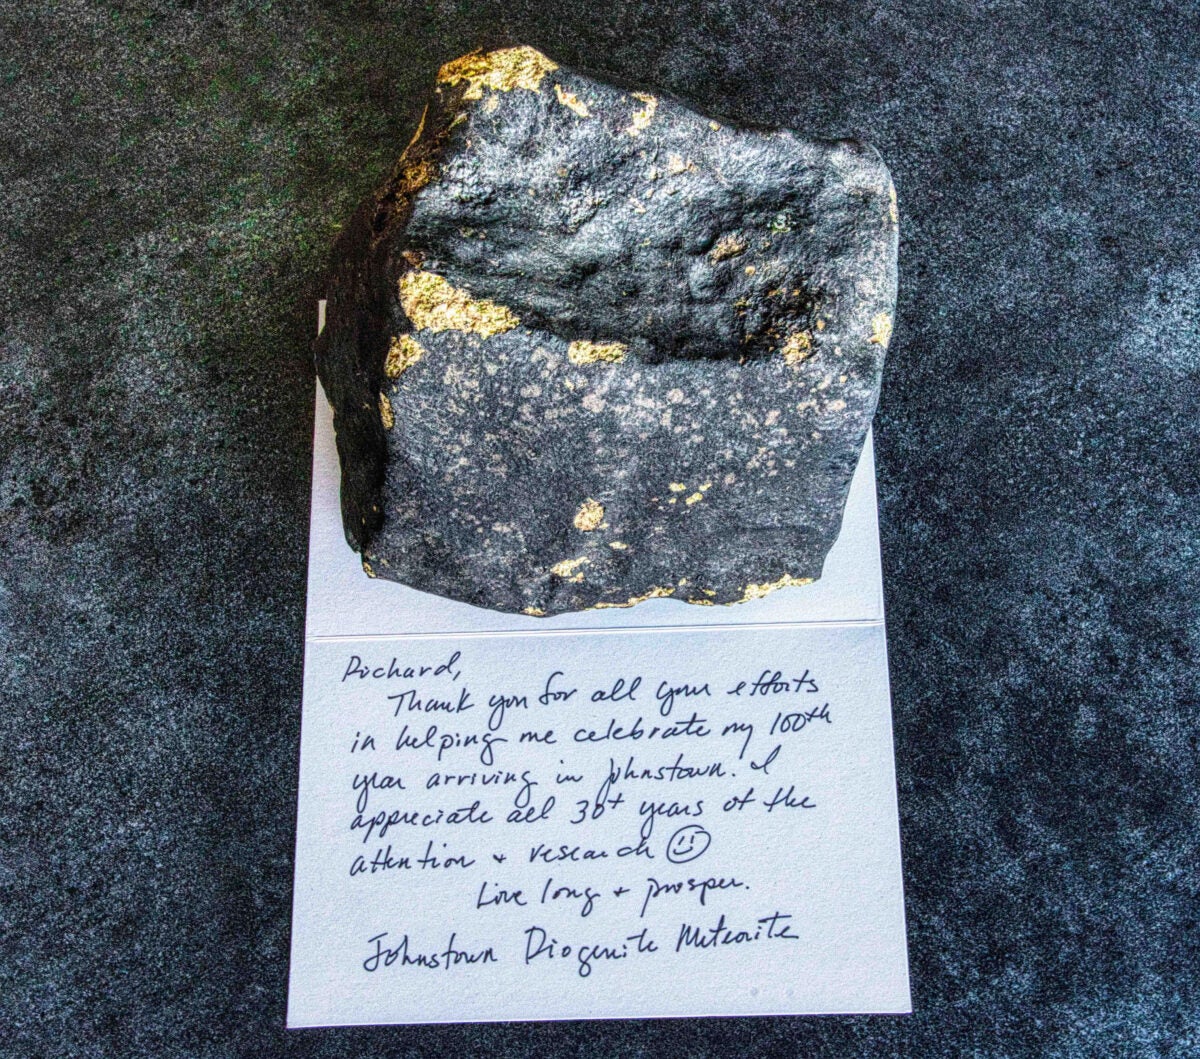 Richard,
Thank you for all your efforts
in helping me celebrate my 100th
year arriving in Johnstown. I
appreciate all 30+ years of the
attention + research ☺
Live long + prosper.
Johnstown Diogenite Meteorite